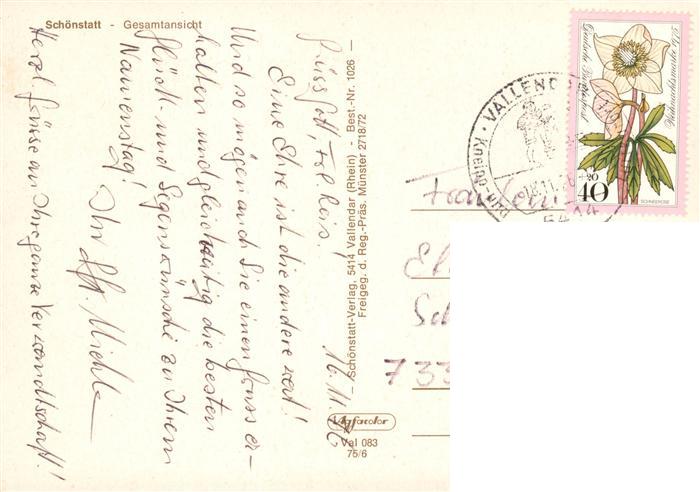 Schönstatt - Gesamtansicht
16.11.76
Grüss Gott, Frl. Reis!
Eine Ehre ist die andere wert!
Und so mögen auch Sie einen Gruss er-
halten und gleichzeitig die besten
Glück- und Segenswünsche zu Ihrem
Namenstag!
Ihr
Herzl. Grüsse an Ihre ganze Verwandtschaft!
Schönstatt-Verlag, 5414 Vallendar (Rhein) - Best.-Nr. 1026 -
Freigeg. d. Reg.-Präs. Münster 2718/72
Agfacolor
Val 083
75/6
VALLENDAR
5414
Deutsche Bundespost
Wohlfahrtsmarke 1975
+20
40
SCHNEEROSE
733